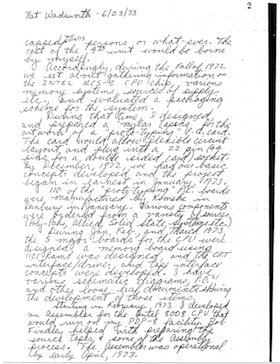 Nat Wadsworth - 6/23/73
2
capped persons or what-ever. The
cost of the 4th unit would be borne
by myself.
Accordingly, during the Fall of 1972
we set about gathering information on
the INTEL 8008 CPU chip, various
memory systems, sources of supply
etc., and evaluated a packaging
scheme for the system.
During that time, I designed
and prepared a
artwork of a "proto-typing" P.C. card.
The card would allow flexible circuit
layout and plug into a 22 pin (44
pins for a double sided card) socket.
By December, 1972, we had our basic
concepts developed and the project
began in earnest in January, 1973.
110 of the "proto-typing" PC boards
were manufactured by
in January. Various components
were ordered from a variety of sources
(Poly Paks, Allied, Solid State, etc.)
During Jan, Feb, and March, 1973,
the 5 major boards for the CPU were
designed, a memory board using
1101 RAMS was designed, and the CRT
interface driver, and tape interface
concepts were developed. I have
various schematic diagrams, etc.,
and other loose leaf documents showing
the development of these items.
Starting in February, 1973 I developed
an Assembler for the Intel 8008 CPU that
would run on a PDP-8 facility. Bob
Findley helped with preparing the
source tapes, & some of the Assembly
process. The Assembler was operational
by early April, 1973.